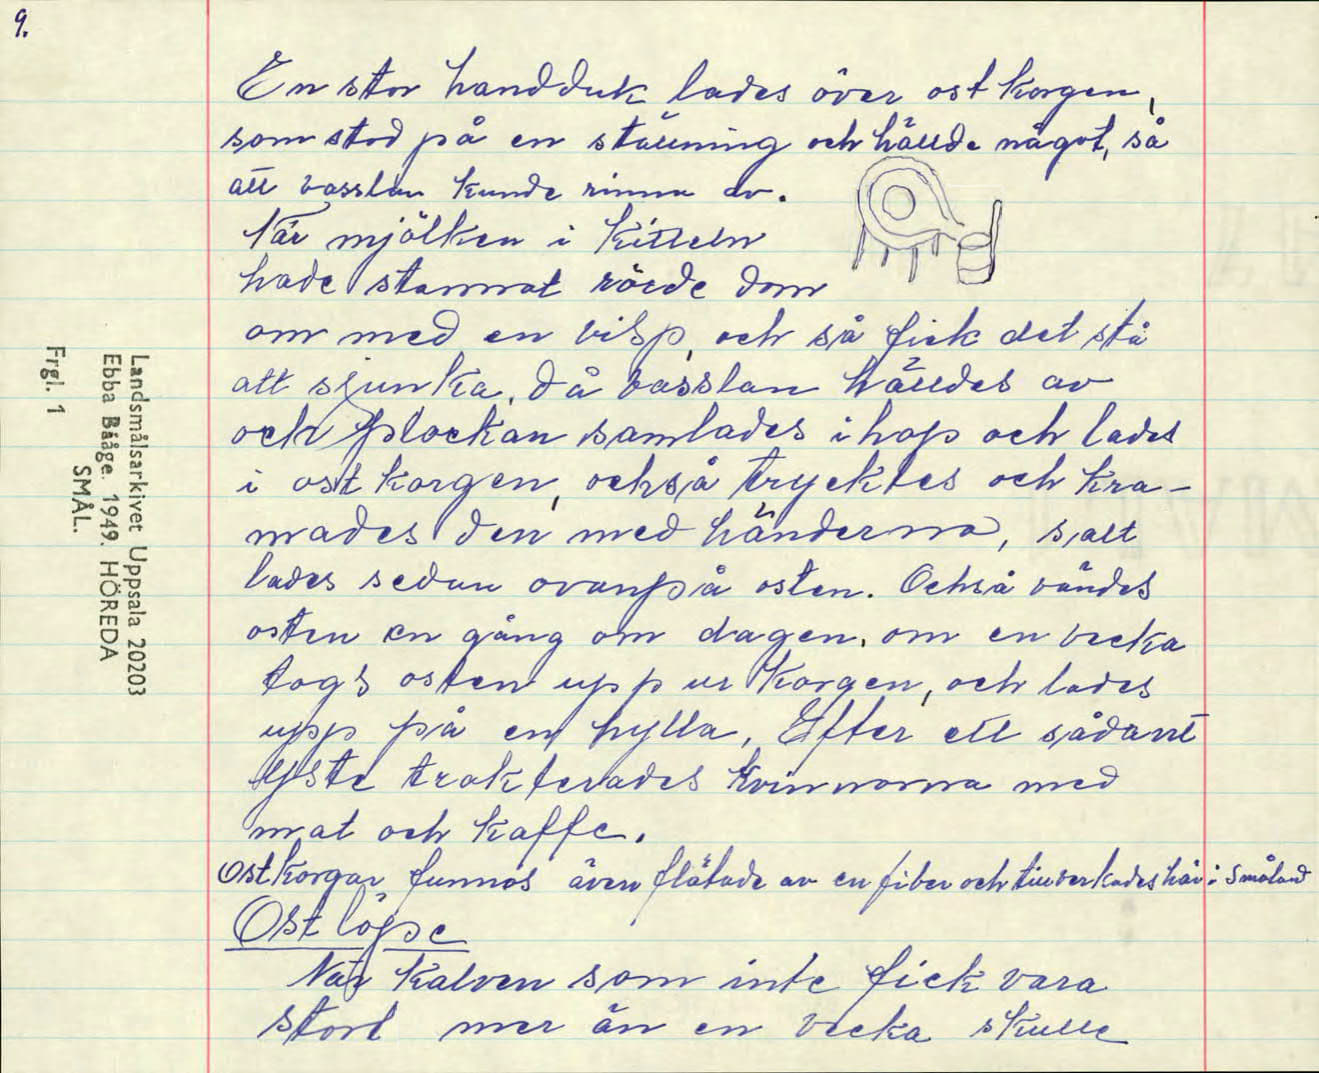 9.
En stor handduk lades över ostkorgen,
som stod på en ställning och hällde något, så
att vasslan kunde rinna av.
När mjölken i kitteln
hade stannat rörde dom
om med en visp, och så fick det stå
att sjunka, då vasslan hälldes av
och plockan samlades ihop och lades
i ostkorgen, också trycktes och kra-
mades den med händerna, salt
lades sedan ovanpå osten. Också vändes
osten en gång om dagen, om en vecka
togs osten upp ur korgen, och lades
upp på en hylla, Efter ett sådant
yste trakterades kvinnorna med
mat och kaffe.
Ostkorgar funnos även flätade av en fiber och tillverkades här i Småland
Ostlöpe
När kalven som inte fick vara
stort mer än en vecka skulle
Landsmålsarkivet Uppsala 20203
Ebba Bååge. 1949. HÖREDA
SMÅL.
Frgl. 1